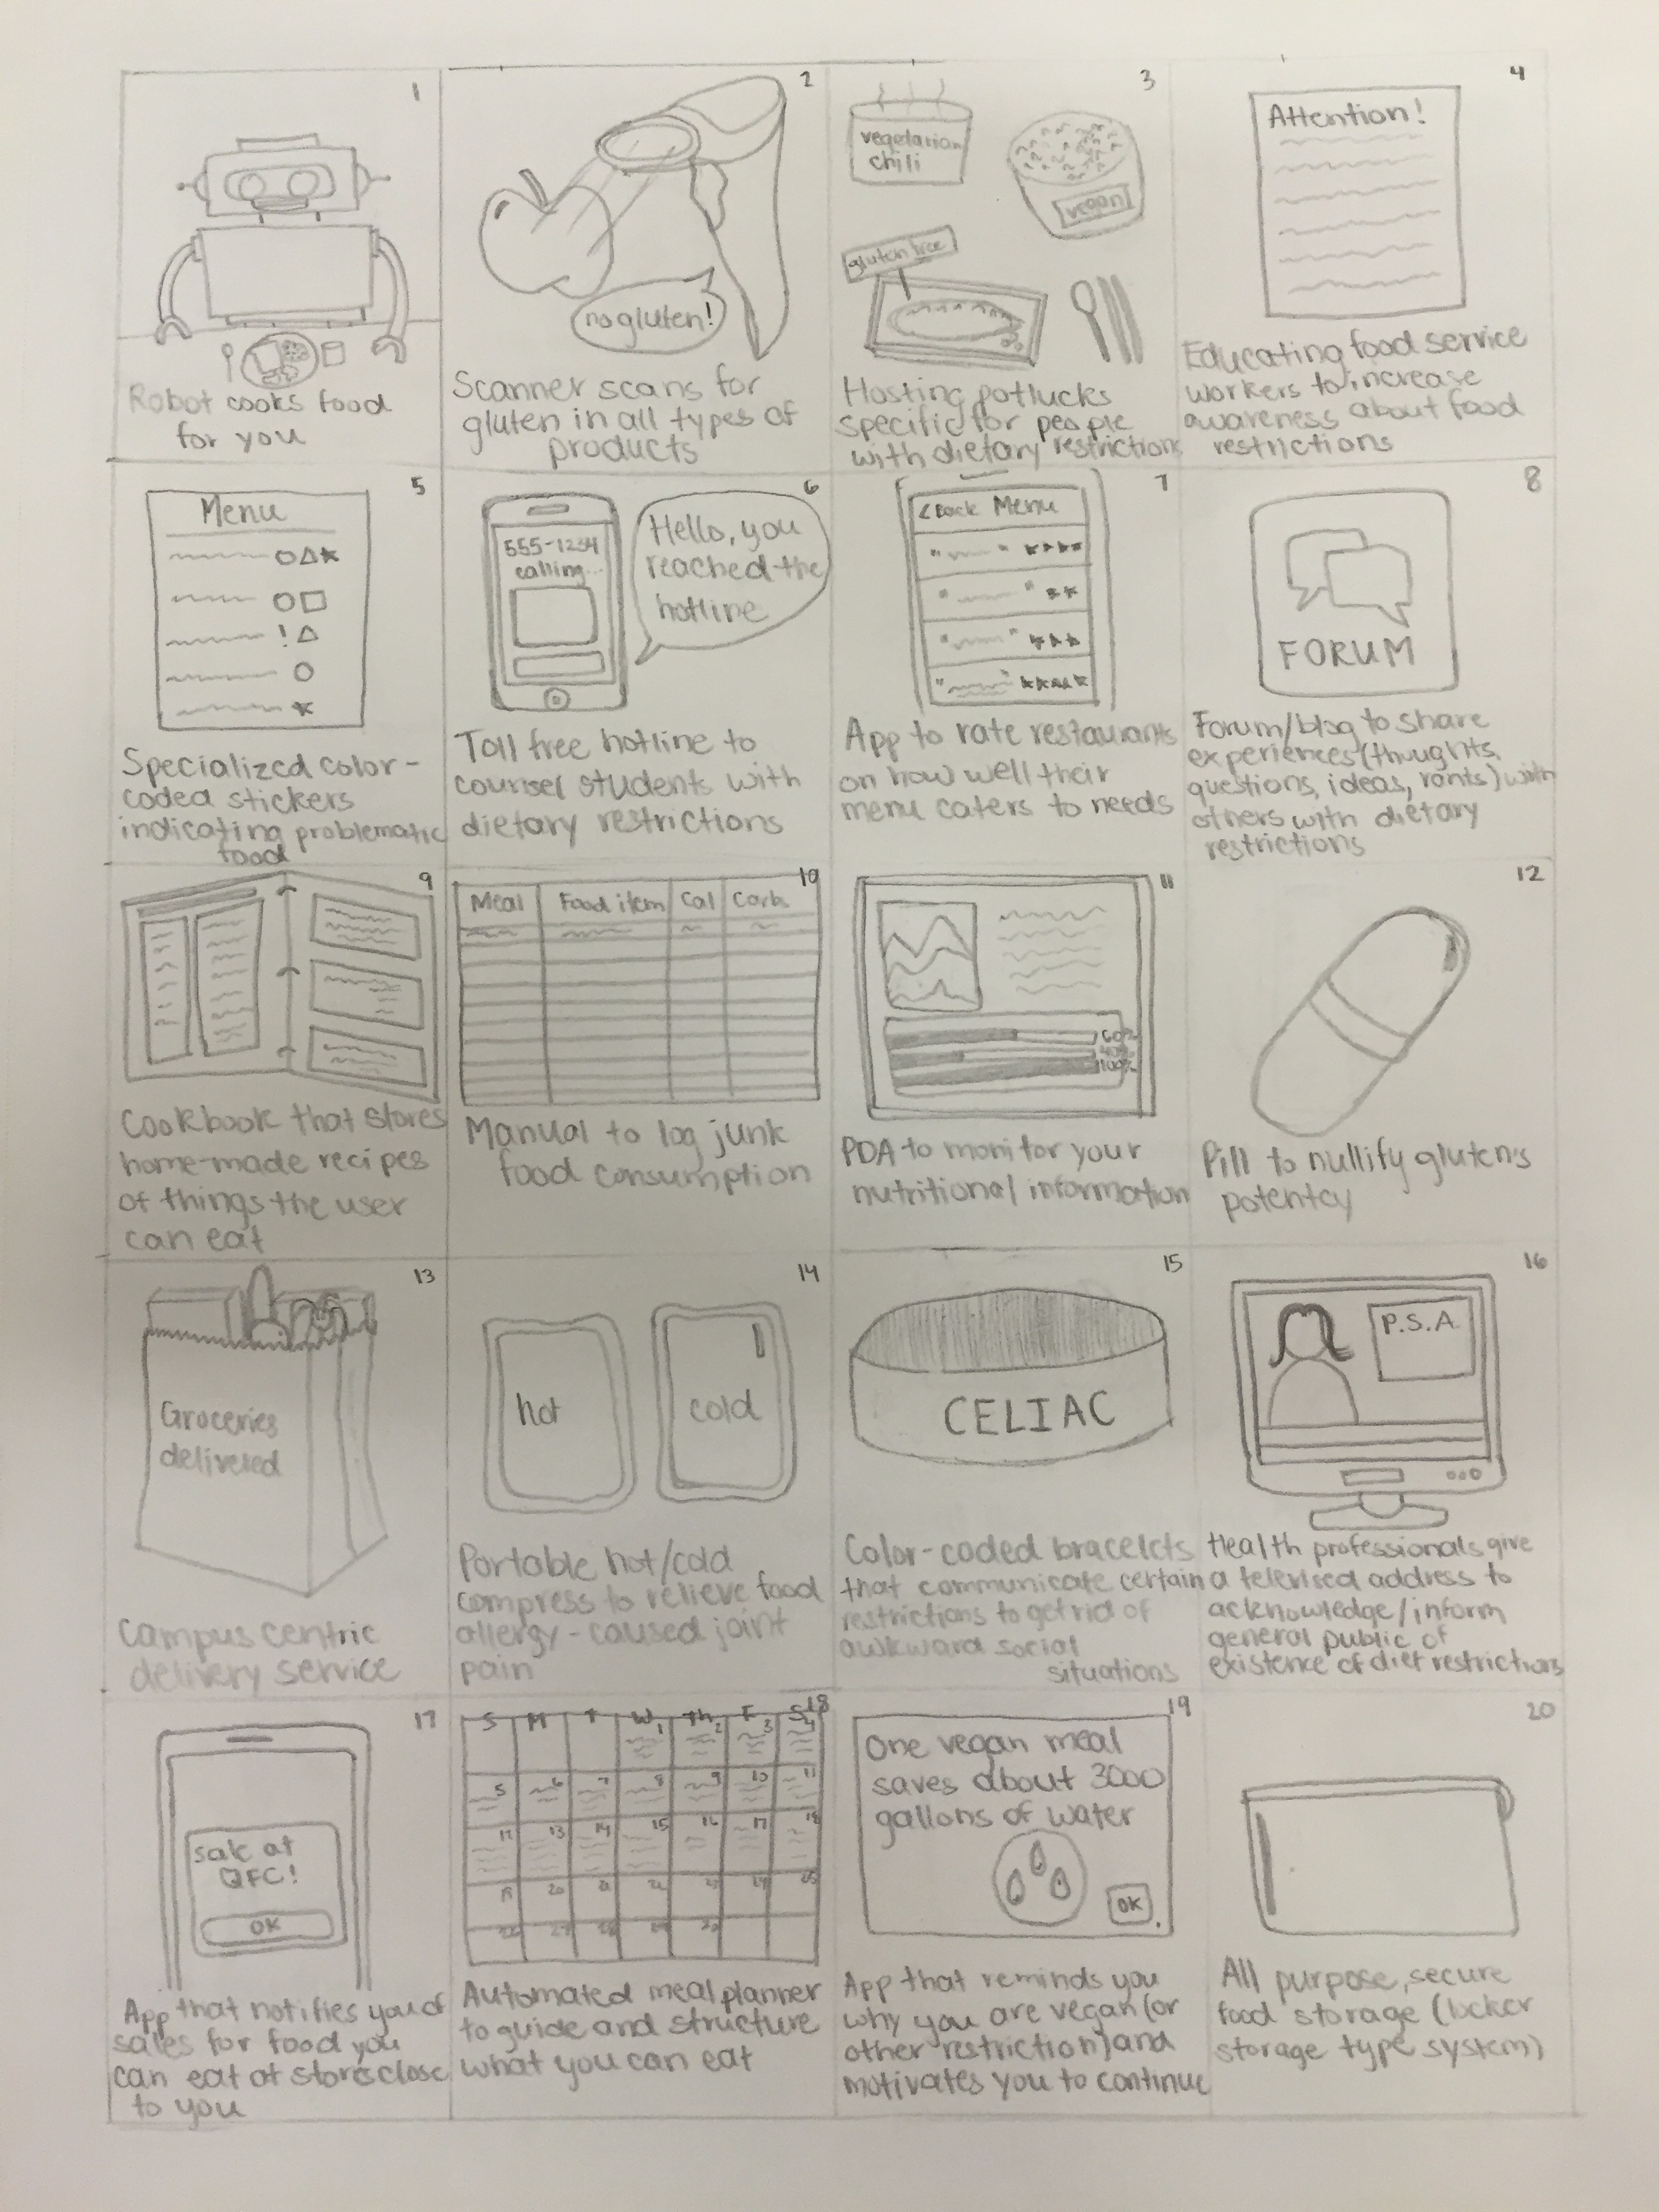 1
Robot cooks food
for you
2
no gluten!
Scanner scans for
gluten in all types of
products
3
vegetarian
chili
vegan
gluten free
Hosting potlucks
specific for people
with dietary restrictions
4
Attention!
Educating food service
workers to increase
awareness about food
restrictions
5
Menu
Specialized color-
coded stickers
indicating problematic
food
6
555-1234
calling...
Hello, you
reached the
hotline
Toll free hotline to
counsel students with
dietary restrictions
7
<Back Menu
App to rate restaurants
on how well their
menu caters to needs
8
FORUM
Forum/blog to share
experiences (thoughts,
questions, ideas, rants) with
others with dietary
restrictions
9
Cookbook that stores
home-made recipes
of things the user
can eat
10
Meal Food item Cal Carb
Manual to log junk
food consumption
11
60%
100%
PDA to monitor your
nutritional information
12
Pill to nullify gluten's
potentcy
13
Groceries
delivered
Campus centric
delivery service
14
hot
cold
Portable hot/cold
compress to relieve food
allergy-caused joint
pain
15
CELIAC
Color-coded bracelets
that communicate certain
restrictions to get rid of
awkward social
situations
16
P.S.A.
Health professionals give
a televised address to
acknowledge/inform
general public of
existence of diet restrictions
17
sale at
QFC!
OK
App that notifies you of
sales for food you
can eat at stores close
to you
18
S M T W Th F S
1 2 3 4
5 6 7 8 9 10 11
12 13 14 15 16 17 18
19 20 21 22 23 24 25
Automated meal planner
to guide and structure
what you can eat
19
One vegan meal
saves about 3000
gallons of water
OK
App that reminds you
why you are vegan (or
other restriction) and
motivates you to continue
20
All purpose, secure
food storage (locker
storage type system)